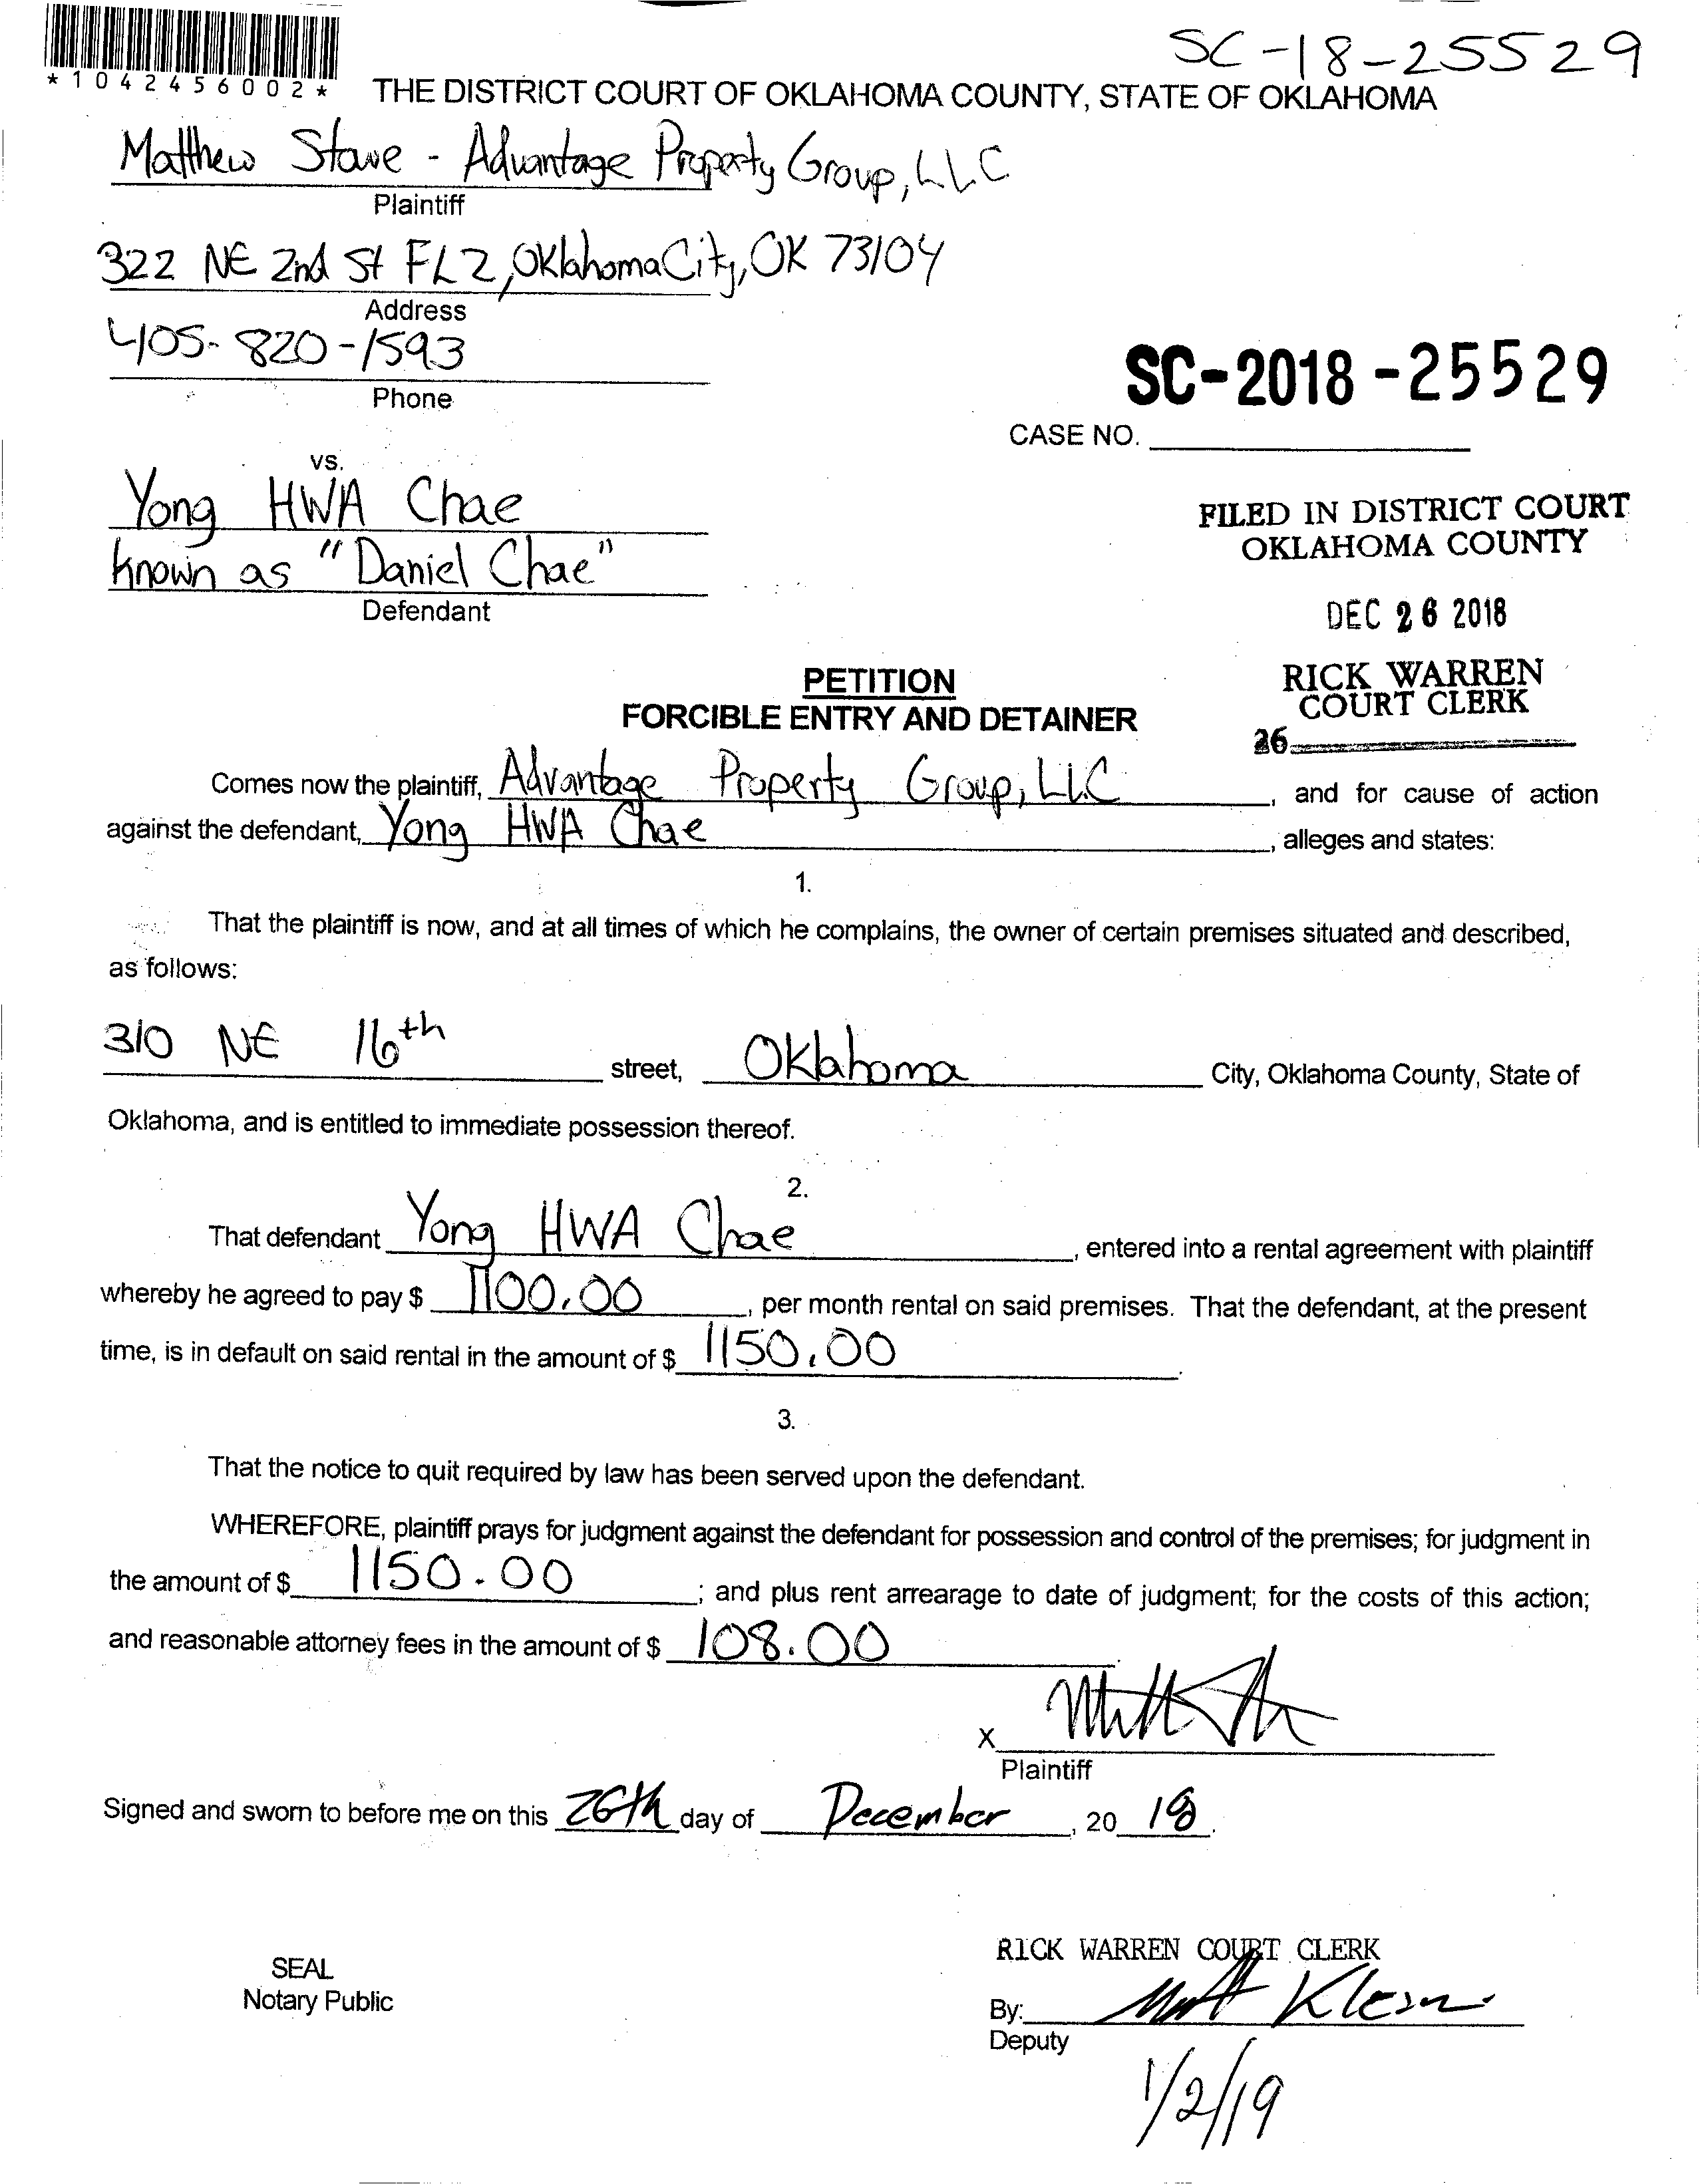 SC-18-25529
*1042456002*
THE DISTRICT COURT OF OKLAHOMA COUNTY, STATE OF OKLAHOMA
Matthew Stave - Advantage Property Group, LLC
Plaintiff
322 NE 2nd St FL 2, Oklahoma City, OK 73104
Address
405-820-1593
Phone
SC-2018-25529
CASE NO.
vs.
Yong HWA Chae
known as "Daniel Chae"
Defendant
FILED IN DISTRICT COURT
OKLAHOMA COUNTY
DEC 26 2018
RICK WARREN
COURT CLERK
36
PETITION
FORCIBLE ENTRY AND DETAINER
Comes now the plaintiff, Advantage Property Group, LLC, and for cause of action
against the defendant, Yong HWA Chae, alleges and states:
1.
That the plaintiff is now, and at all times of which he complains, the owner of certain premises situated and described,
as follows:
310 NE 16th street, Oklahoma City, Oklahoma County, State of
Oklahoma, and is entitled to immediate possession thereof.
2.
That defendant Yong HWA Chae, entered into a rental agreement with plaintiff
whereby he agreed to pay $ 1100.00, per month rental on said premises. That the defendant, at the present
time, is in default on said rental in the amount of $ 1150.00.
3.
That the notice to quit required by law has been served upon the defendant.
WHEREFORE, plaintiff prays for judgment against the defendant for possession and control of the premises; for judgment in
the amount of $ 1150.00; and plus rent arrearage to date of judgment; for the costs of this action;
and reasonable attorney fees in the amount of $ 108.00.
X
Plaintiff
Signed and sworn to before me on this 26th day of December, 20 18.
SEAL
Notary Public
RICK WARREN COURT CLERK
By: Matt
Deputy
1/2/19